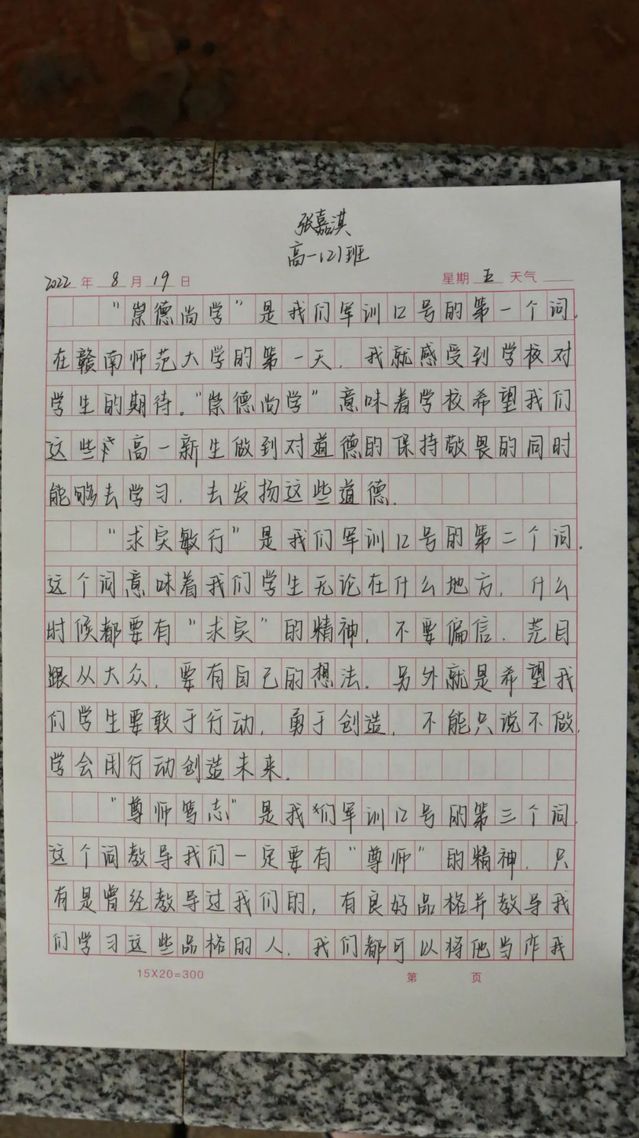 张嘉淇
高一(2)班
2022 年 8 月 19 日 星期 五 天气
“崇德尚学”是我们军训口号的第一个词.
在赣南师范大学的第一天,我就感受到学校对
学生的期待。“崇德尚学”意味着学校希望我们
这些高一新生做到对道德的保持敬畏的同时
能够去学习,去发扬这些道德.
“求实敏行”是我们军训口号的第二个词.
这个词意味着我们学生无论在什么地方,什么
时候都要有“求实”的精神,不要偏信.芒目
跟从大众,要有自己的想法.另外就是希望我
们学生要敢于行动,勇于创造,不能只说不做.
学会用行动创造未来.
“尊师笃志”是我们军训口号的第三个词.
这个词教导我们一定要有“尊师”的精神.只
有是曾经教导过我们的,有良好品格并教导我
们学习这些品格的人.我们都可以将他当作我
15X20=300 第 页